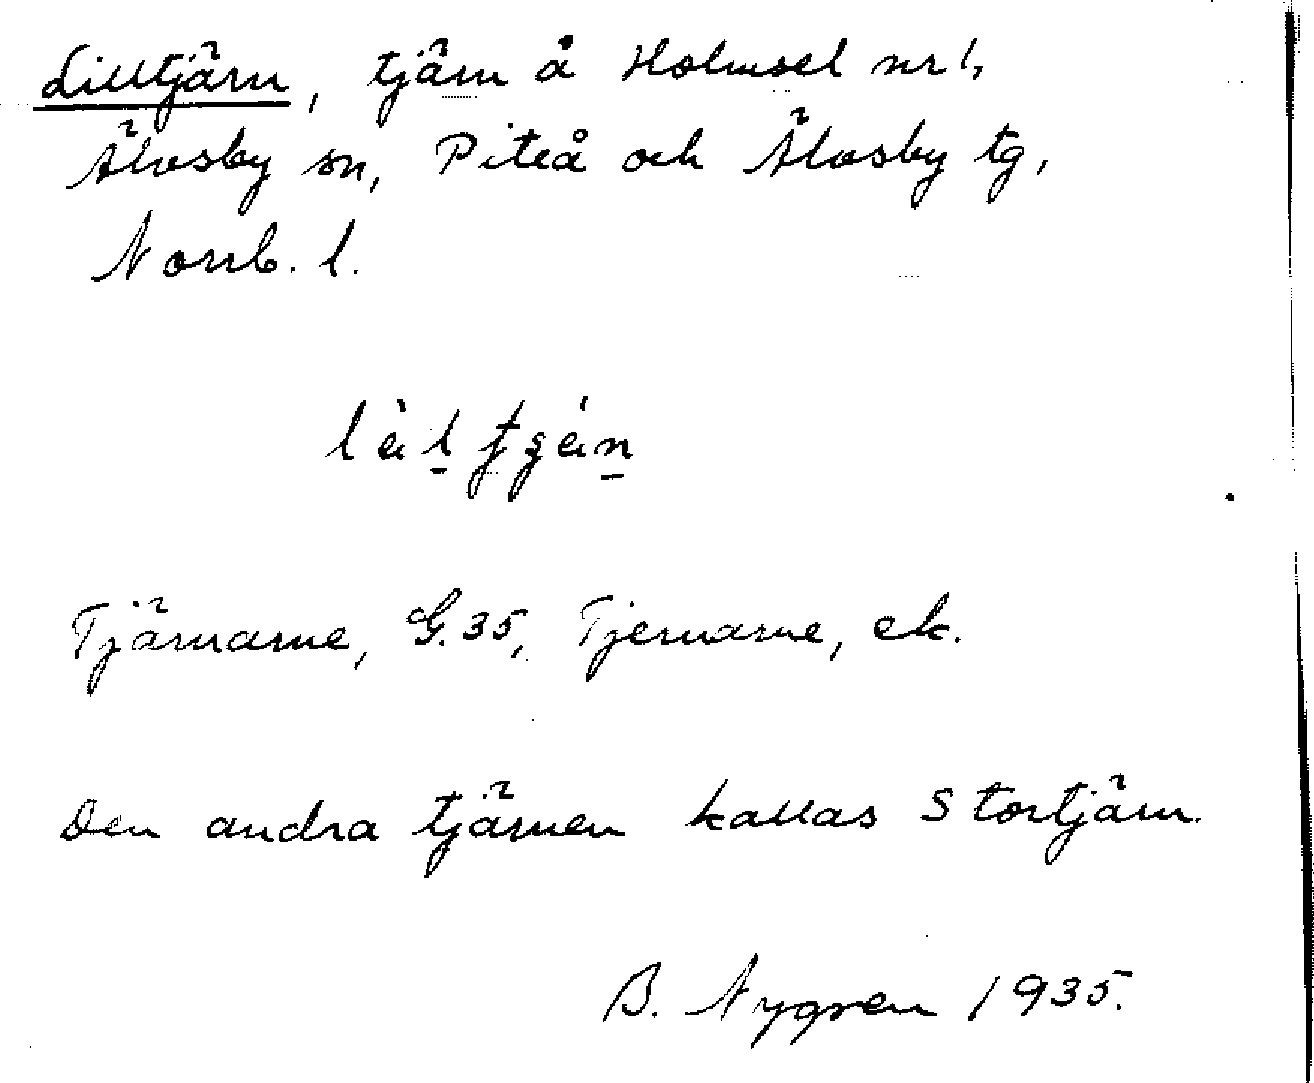 Lilltjärn, tjärn å Holmsel nr 1,
Älvsby sn, Piteå och Älvsby tg,
Norrb. l.
Tjärnarne, G. 35, Tjernarne, ek.
Den andra tjärnen kallas Stortjärn.
B. Nygren 1935.